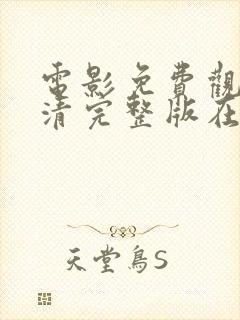 電影免費觀
清完整版在
天堂鳥S